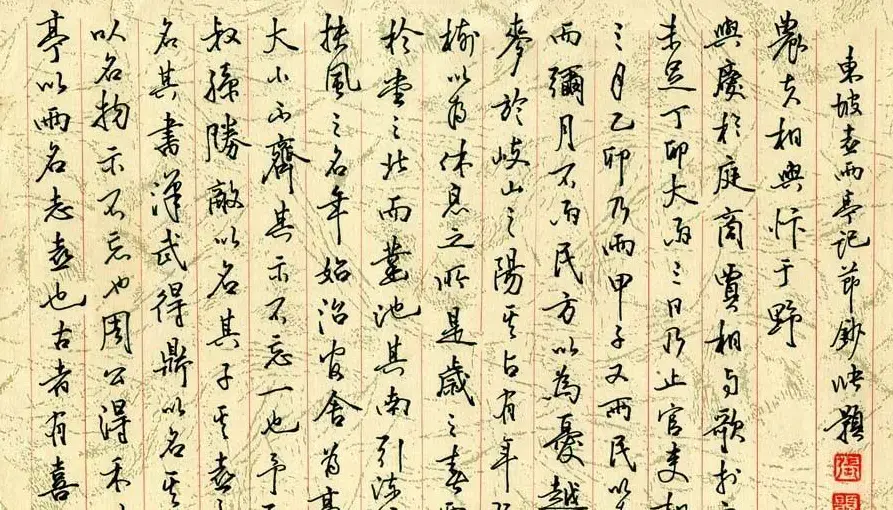 亭以雨名志喜也古者有喜
以名物示不忘也周公得禾
名其書漢武得鼎以名其
叔孫勝敵以名其子其喜
大小不齊其示不忘一也予
扶風之名年始治官舍為亭
於堂之北而鑿池其南引流
樹以為休息之所是歲之春雨
麥於岐山之陽其占有年既
而彌月不雨民方以為憂越
三月乙卯乃雨甲子又雨民以
未足丁卯大雨三日乃止官吏相
與慶於庭商賈相与歌於
農夫相與忭于野
東坡喜雨亭記節鈔 題